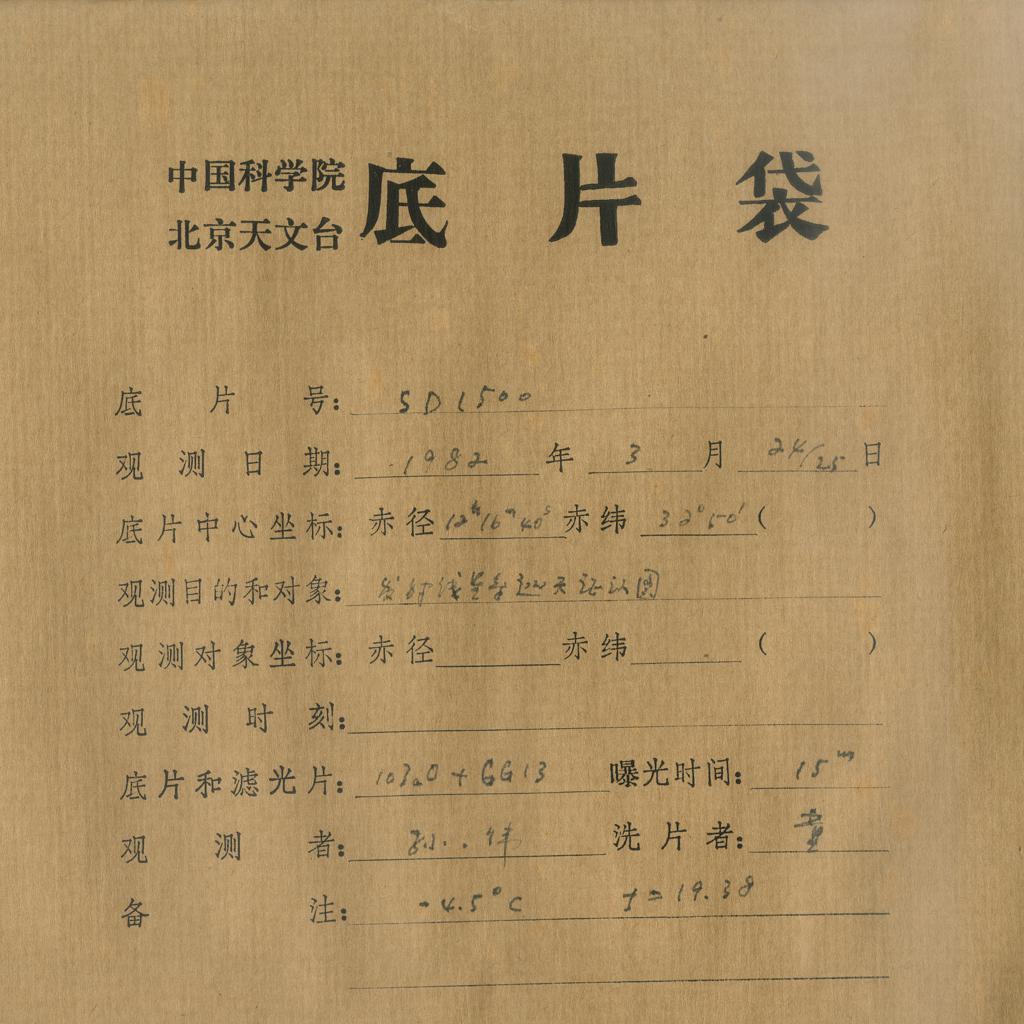 中国科学院
北京天文台
底片袋
底片号: SD1500
观测日期: 1982年3月24/25日
底片中心坐标: 赤径12ʰ16ᵐ40ˢ赤纬32°50′( )
观测目的和对象: 发射线星系巡天证认图
观测对象坐标: 赤径 赤纬 ( )
观测时刻:
底片和滤光片: 103aO + GG13 曝光时间: 15ᵐ
观测者: 孙..伟 洗片者: 董
备注: -4.5°C f=19.38